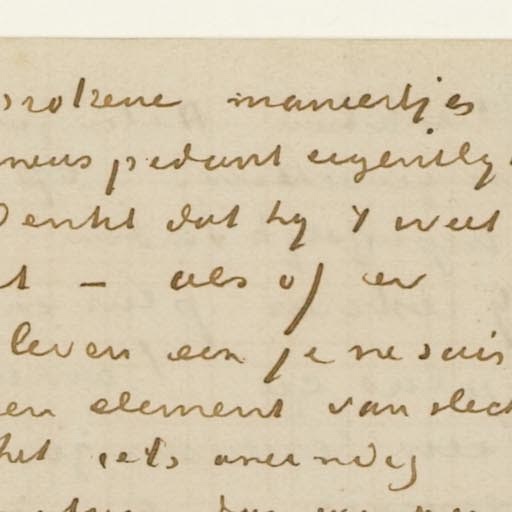 maniertjes
pedant eigenlijk
Denkt dat hy 't weet
t – als of er
leven een je ne sais
en element van slech
het iets oneindig